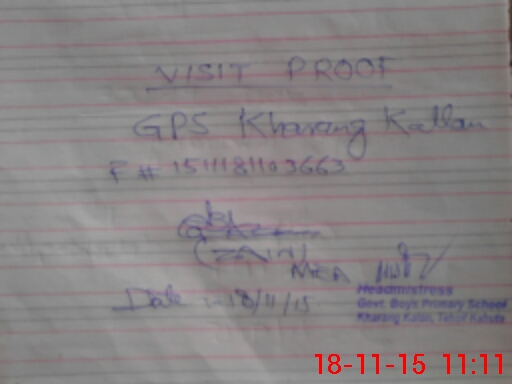 VISIT PROOF
GPS Kharang Kallan
F # 1511181103663
(ZAIN)
MEA
Date :- 18/11/15
Headmistress
Govt. Boy's Primary School
Kharang Kalan, Tehsil Kahuta
18-11-15 11:11